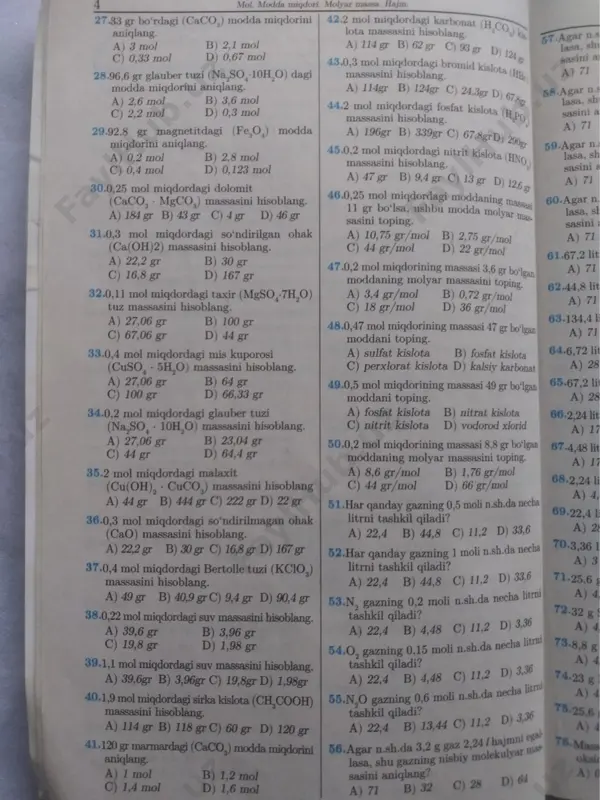 4
Mol. Modda miqdori. Molyar massa. Hajm.
27.33 gr bo'rdagi (CaCO3) modda miqdorini
aniqlang.
A) 3 mol B) 2,1 mol
C) 0,33 mol D) 0,67 mol
28.96,6 gr glauber tuzi (Na2SO4·10H2O) dagi
modda miqdorini aniqlang.
A) 2,6 mol B) 3,6 mol
C) 2,2 mol D) 0,3 mol
29.92.8 gr magnetitdagi (Fe3O4) modda
miqdorini aniqlang.
A) 0,2 mol B) 2,8 mol
C) 0,4 mol D) 0,123 mol
30.0,25 mol miqdordagi dolomit
(CaCO3 · MgCO3) massasini hisoblang.
A) 184 gr B) 43 gr C) 4 gr D) 46 gr
31.0,3 mol miqdordagi so'ndirilgan ohak
(Ca(OH)2) massasini hisoblang.
A) 22,2 gr B) 30 gr
C) 16,8 gr D) 167 gr
32.0,11 mol miqdordagi taxir (MgSO4·7H2O)
tuz massasini hisoblang.
A) 27,06 gr B) 100 gr
C) 67,06 gr D) 44 gr
33.0,4 mol miqdordagi mis kuporosi
(CuSO4 · 5H2O) massasini hisoblang.
A) 27,06 gr B) 64 gr
C) 100 gr D) 66,33 gr
34.0,2 mol miqdordagi glauber tuzi
(Na2SO4 · 10H2O) massasini hisoblang.
A) 27,06 gr B) 23,04 gr
C) 44 gr D) 64,4 gr
35.2 mol miqdordagi malaxit
(Cu(OH)2 · CuCO3) massasini hisoblang
A) 44 gr B) 444 gr C) 222 gr D) 22 gr
36.0,3 mol miqdordagi so'ndirilmagan ohak
(CaO) massasini hisoblang.
A) 22,2 gr B) 30 gr C) 16,8 gr D) 167 gr
37.0,4 mol miqdordagi Bertolle tuzi (KClO3)
massasini hisoblang.
A) 49 gr B) 40,9 gr C) 9,4 gr D) 90,4 gr
38.0,22 mol miqdordagi suv massasini hisoblang.
A) 39,6 gr B) 3,96 gr
C) 19,8 gr D) 1,98 gr
39.1,1 mol miqdordagi suv massasini hisoblang.
A) 39,6gr B) 3,96gr C) 19,8gr D) 1,98gr
40.1,9 mol miqdordagi sirka kislota (CH3COOH)
massasini hisoblang.
A) 114 gr B) 118 gr C) 60 gr D) 120 gr
41.120 gr marmardagi (CaCO3) modda miqdorini
aniqlang.
A) 1 mol B) 1,2 mol
C) 1,4 mol D) 1,6 mol
42.2 mol miqdordagi karbonat (H2CO3) kis
lota massasini hisoblang.
A) 114 gr B) 62 gr C) 93 gr D) 124 g
43.0,3 mol miqdordagi bromid kislota
massasini hisoblang.
A) 114gr B) 124gr C) 24.3gr D)
44.2 mol miqdordagi fosfat kislota (H3PO4)
massasini hisoblang.
A) 196gr B) 339gr C) 67.8gr D) 290gr
45.0,2 mol miqdordagi nitrit kislota (HNO2)
massasini hisoblang.
A) 47 gr B) 9,4 gr C) 13 gr D) 12,6 g
46.0,25 mol miqdordagi moddaning massasi
11 gr bo'lsa, ushbu modda molyar mas-
sasini toping.
A) 10,75 gr/mol B) 2,75 gr/mol
C) 44 gr/mol D) 22 gr/mol
47.0,2 mol miqdorining massasi 3,6 gr bo'lgan
moddaning molyar massasini toping.
A) 3,4 gr/mol B) 0,72 gr/mol
C) 18 gr/mol D) 36 gr/mol
48.0,47 mol miqdorining massasi 47 gr bo'lgan
moddani toping.
A) sulfat kislota B) fosfat kislota
C) perxlorat kislota D) kalsiy karbonat
49.0,5 mol miqdorining massasi 49 gr bo'lgan
moddani toping.
A) fosfat kislota B) nitrat kislota
C) nitrit kislota D) vodorod xlorid
50.0,2 mol miqdorining massasi 8,8 gr bo'lgan
moddaning molyar massasini toping.
A) 8,6 gr/mol B) 1,76 gr/mol
C) 44 gr/mol D) 66 gr/mol
51.Har qanday gazning 0,5 moli n.sh.da necha
litrni tashkil qiladi?
A) 22,4 B) 44,8 C) 11,2 D) 33,6
52.Har qanday gazning 1 moli n.sh.da necha
litrni tashkil qiladi?
A) 22,4 B) 44,8 C) 11,2 D) 33,6
53.N2 gazning 0,2 moli n.sh.da necha litrni
tashkil qiladi?
A) 22,4 B) 4,48 C) 11,2 D) 3,36
54.O2 gazning 0,15 moli n.sh.da necha litrni
tashkil qiladi?
A) 22,4 B) 4,48 C) 11,2 D) 3,36
55.N2O gazning 0,6 moli n.sh.da necha litrni
tashkil qiladi?
A) 22,4 B) 13,44 C) 11,2 D) 3,36
56.Agar n.sh.da 3,2 g gaz 2,24 l hajmni egal
lasa, shu gazning nisbiy molekulyar mas-
sasini aniqlang?
A) 71 B) 32 C) 28 D) 64
57.Agar n.s
lasa, shu
sasini a
A) 71
58.Agar n.s
lasa, sh
sasini a
A) 71
59.Agar n.
lasa, sh
sasini a
A) 71
60.Agar n.
lasa, sl
sasini
A) 71
61.67,2 lit
A) 71
62.44,8 lit
A) 71
63.134,4 li
A) 71
64.6,72 lit
A) 28
65.67,2 li
A) 28
66.2,24 lit
A) 17
67.4,48 lit
A) 17
68.2,24 li
A) 4,
69.22,4 l
A) 28
70.3,36 l
A) 3
71.25,6
A) 4
72.32 g
A) 4
73.8,8 g
A) 4
74.23 g
A) 4
75.25,6
A) 4
76.Massa
oksi
A) 6